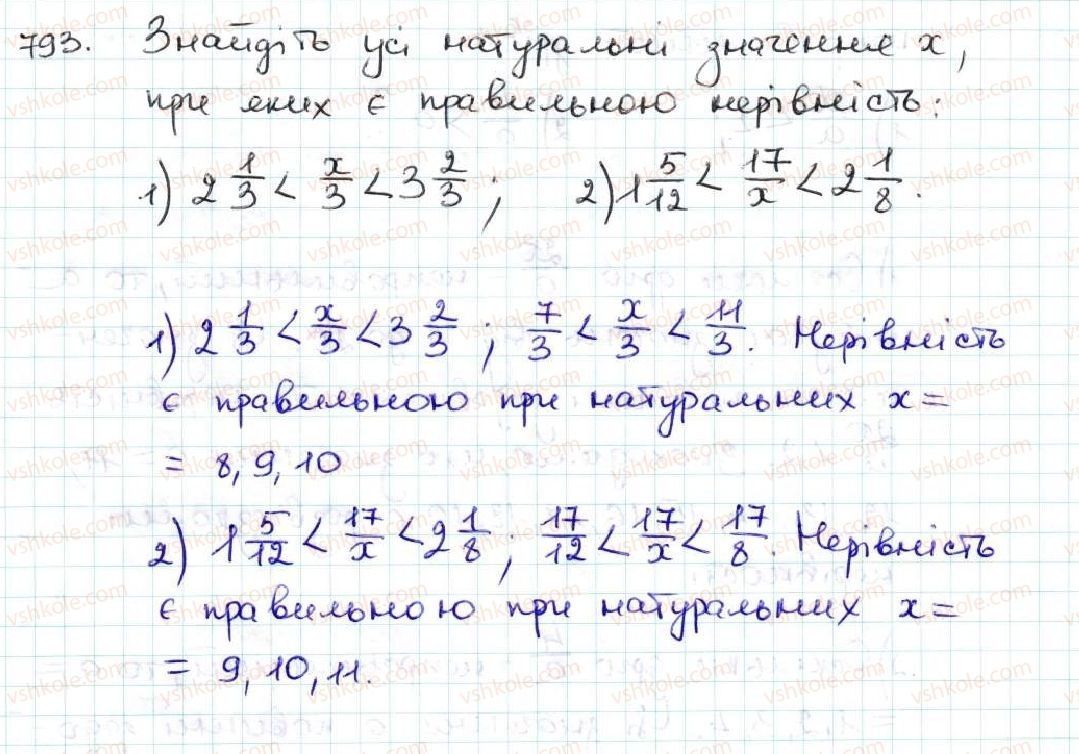 793. Знайдіть усі натуральні значення x,
при яких є правильною нерівність:
1) 2 1/3 < x/3 < 3 2/3 ; 2) 1 5/12 < 17/x < 2 1/8 .
1) 2 1/3 < x/3 < 3 2/3 ; 7/3 < x/3 < 11/3 . Нерівність
є правильною при натуральних x =
= 8, 9, 10
2) 1 5/12 < 17/x < 2 1/8 ; 17/12 < 17/x < 17/8 . Нерівність
є правильною при натуральних x =
= 9, 10, 11.